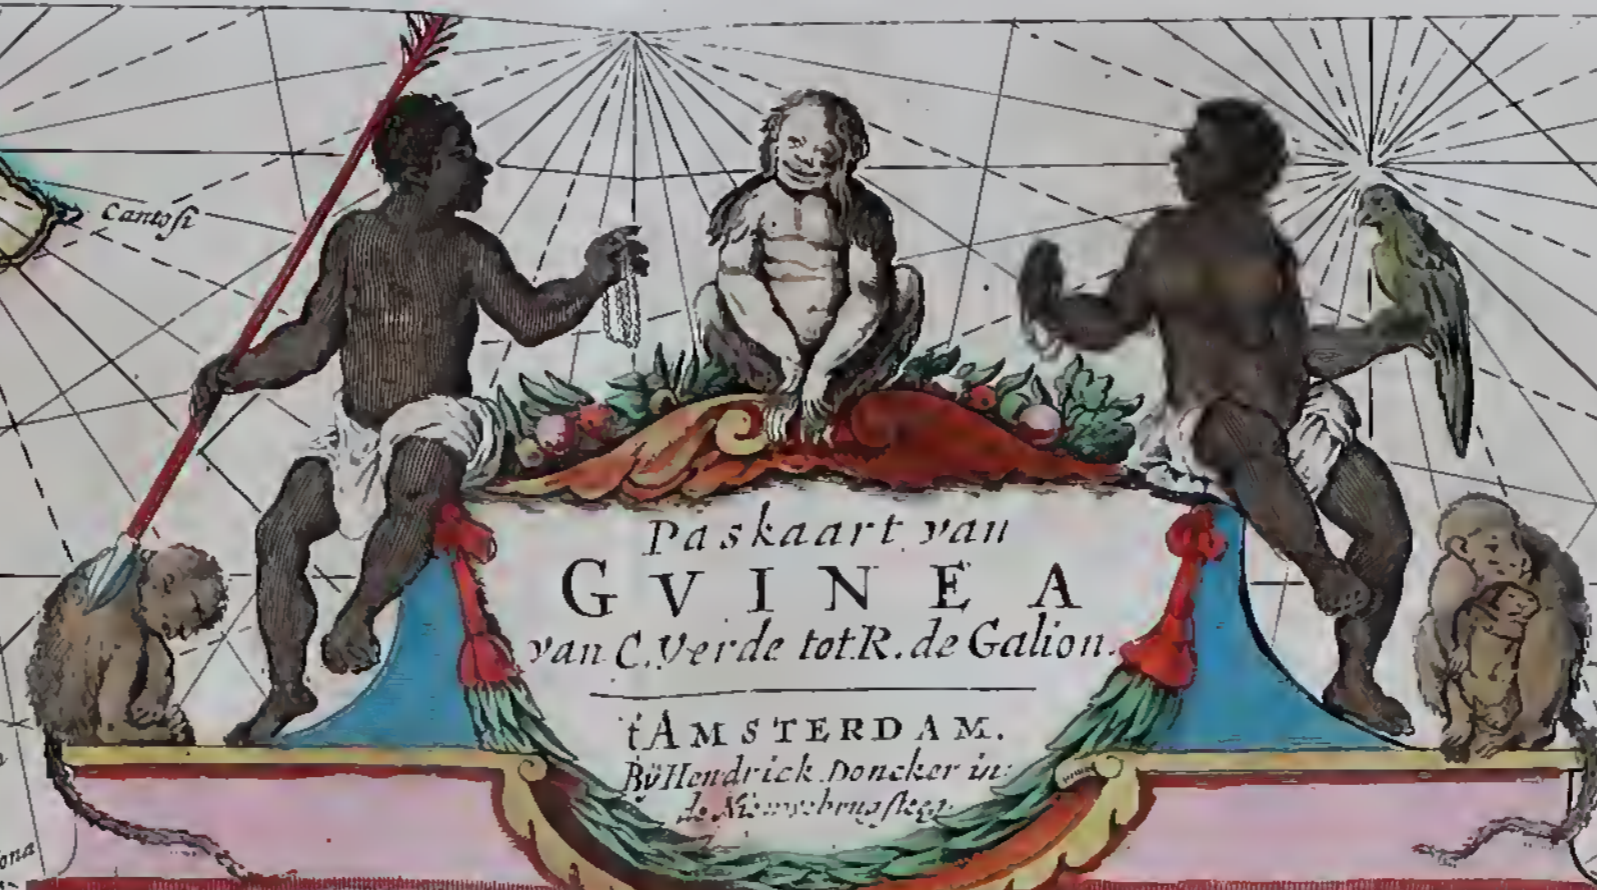 Cantosi
Paskaart van
GVINEA
van C. Verde tot R. de Galion.
't AMSTERDAM.
Bÿ Hendrick Doncker in
de Nieuwebrugsteeg